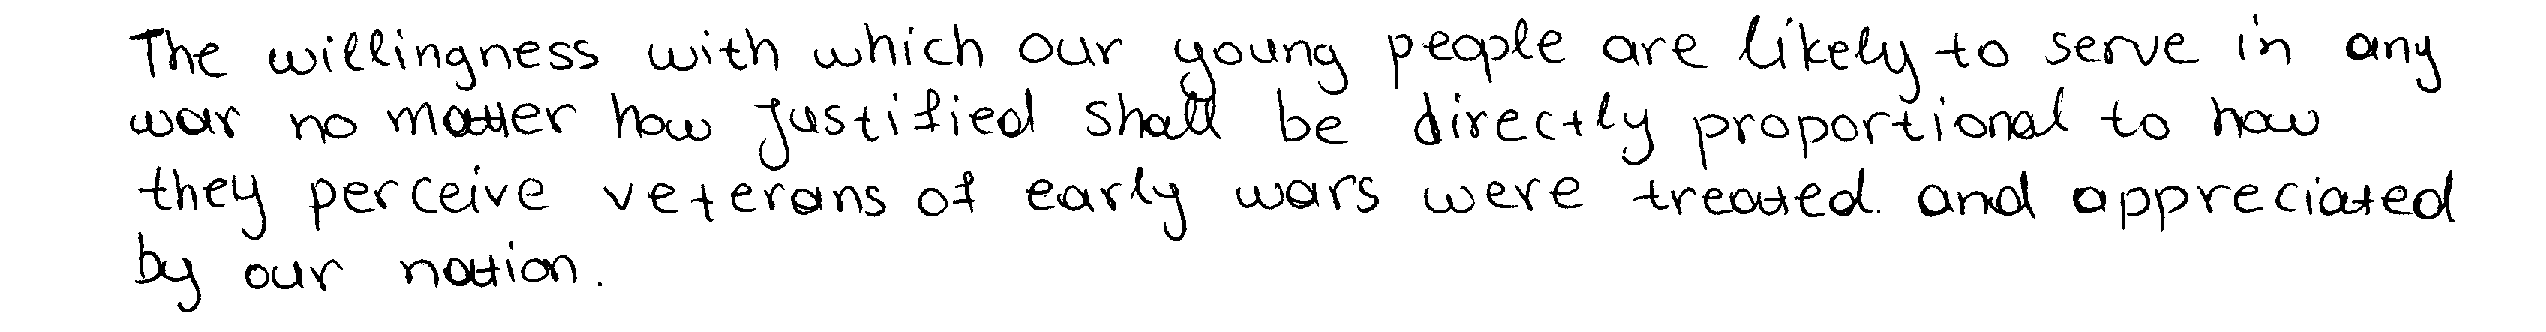 The willingness with which our young people are likely to serve in any
war no matter how justified shall be directly proportional to how
they perceive veterans of early wars were treated. and appreciated
by our nation.